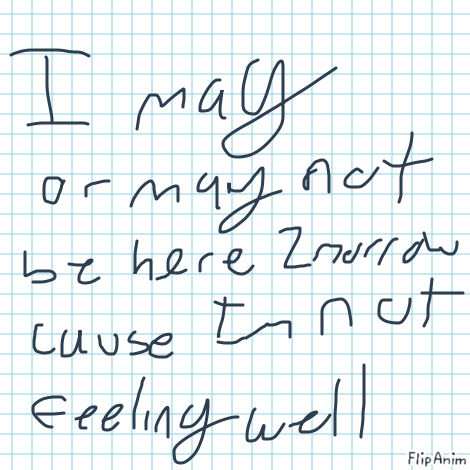 I may
or may not
be here 2morrow
cause Im not
feeling well
FlipAnim